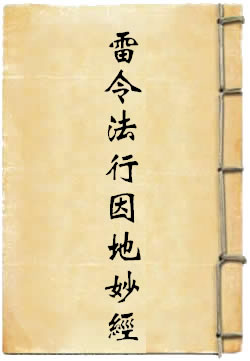 雷令法行因地妙經